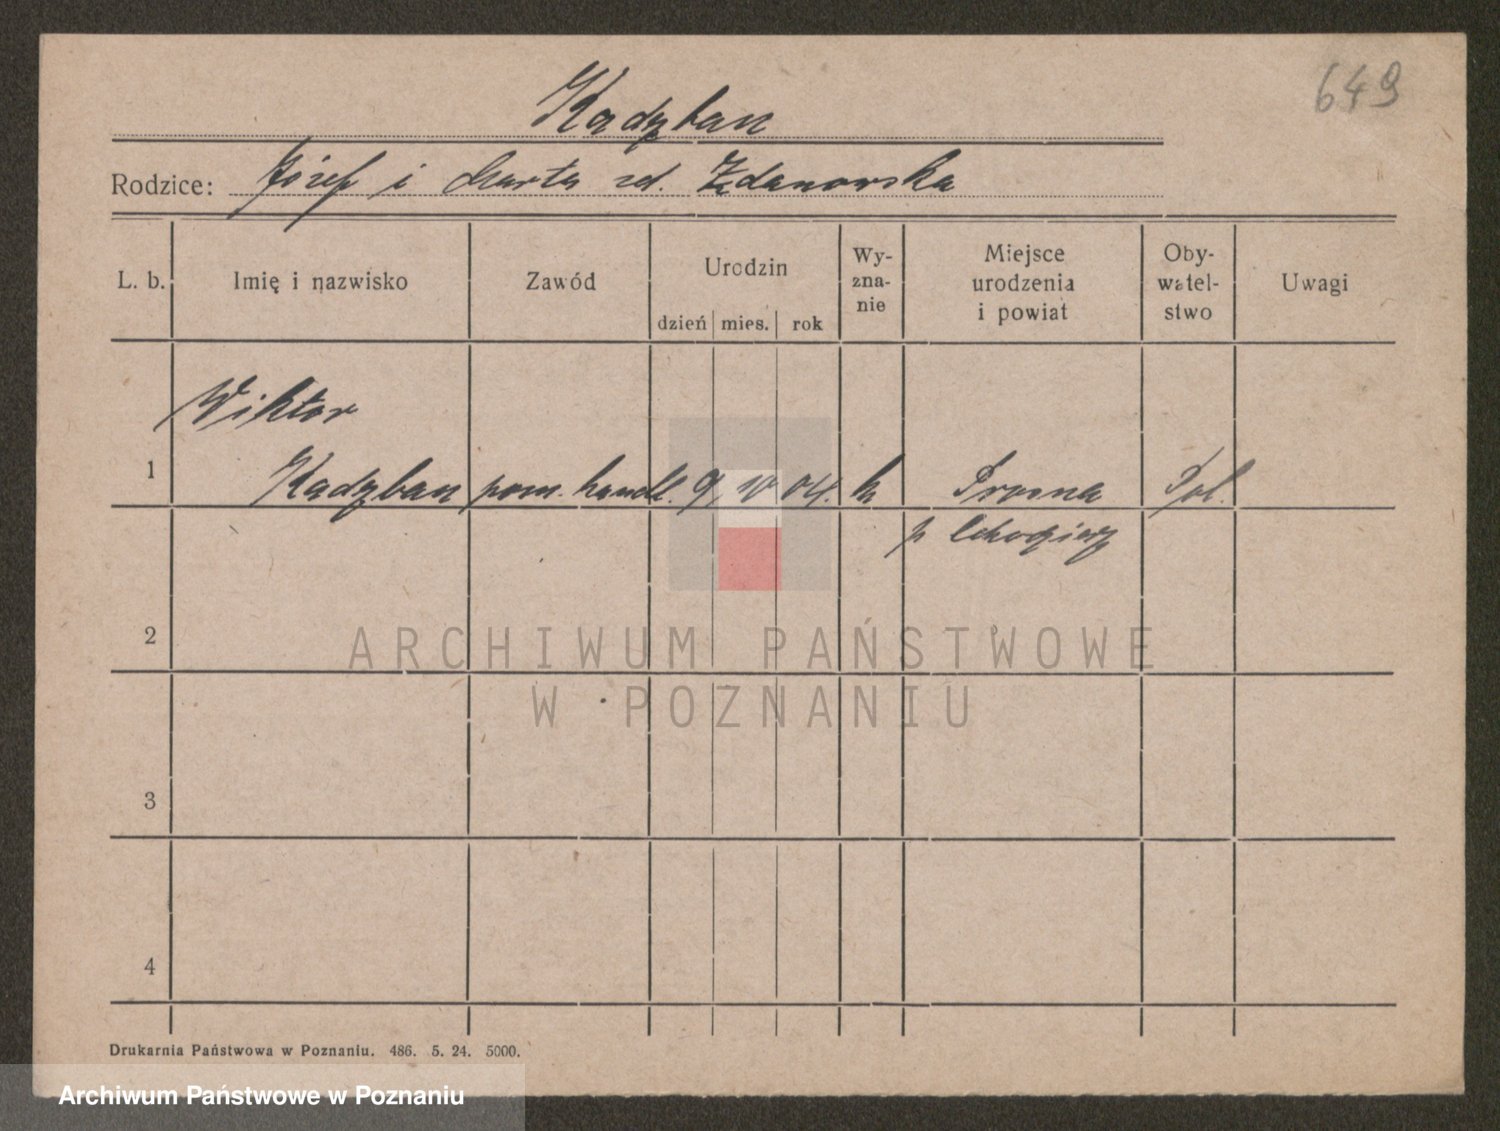 649
Kądzban
Rodzice: Józef i Marta zd. Zdanowska
L. b. Imię i nazwisko Zawód Urodzin dzień mies. rok Wy-zna-nie Miejsce urodzenia i powiat Oby-watel-stwo Uwagi
Wiktor
1 Kądzban pom. handl. 9 10 04. k Prosna Pol.
p Chodzież
2
ARCHIWUM PAŃSTWOWE
W POZNANIU
3
4
Drukarnia Państwowa w Poznaniu. 486. 5. 24. 5000.
Archiwum Państwowe w Poznaniu